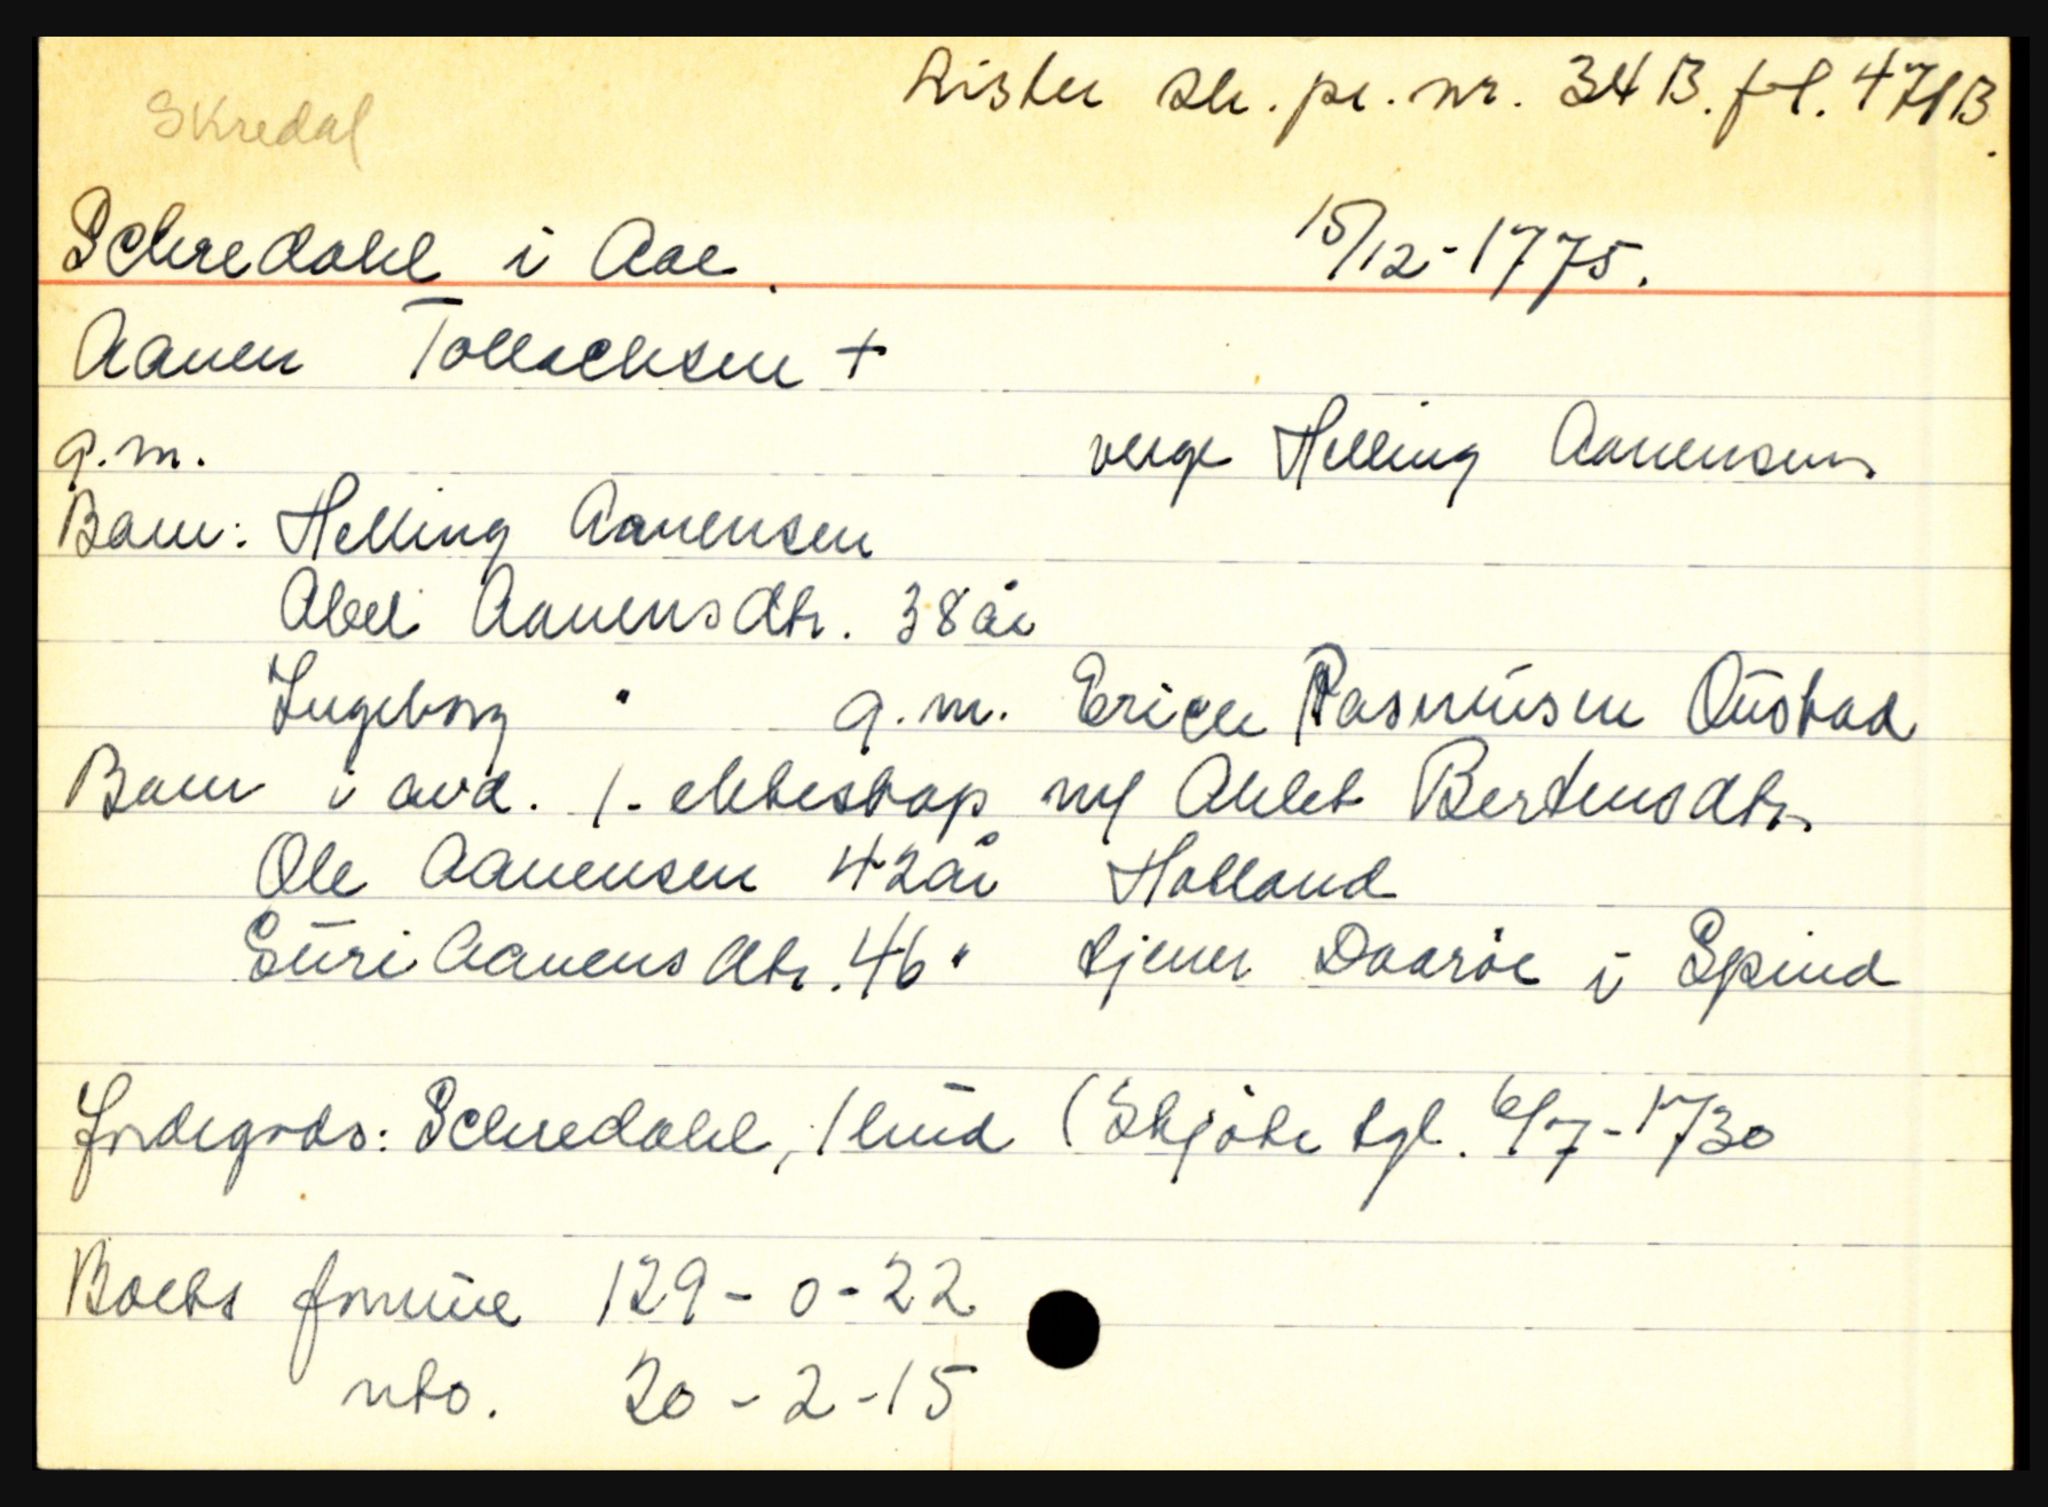 Lister sk. pr. nr. 34B. fol. 471B.
Skredal
Schredahl i Aae. 15/12-1775.
Aanen Tollachsen +
g.m. verge Helling Aanensen
Barn: Helling Aanensen
Abel Aanensdtr. 38 år
Ingeborg " g.m. Erich Rasmüsen Oüstad
Barn i avd. 1. ektestap m/ Ahlet Bertensdtr.
Ole Aanensen 42 år Holland
Süri Aanensdtr. 46 " tjener Daaröe i Spind
Jordegods: Schredahl, 1 hüd (Skjöte tgl. 6/7-1730
Boets formüe 129-0-22
nto. 20-2-15